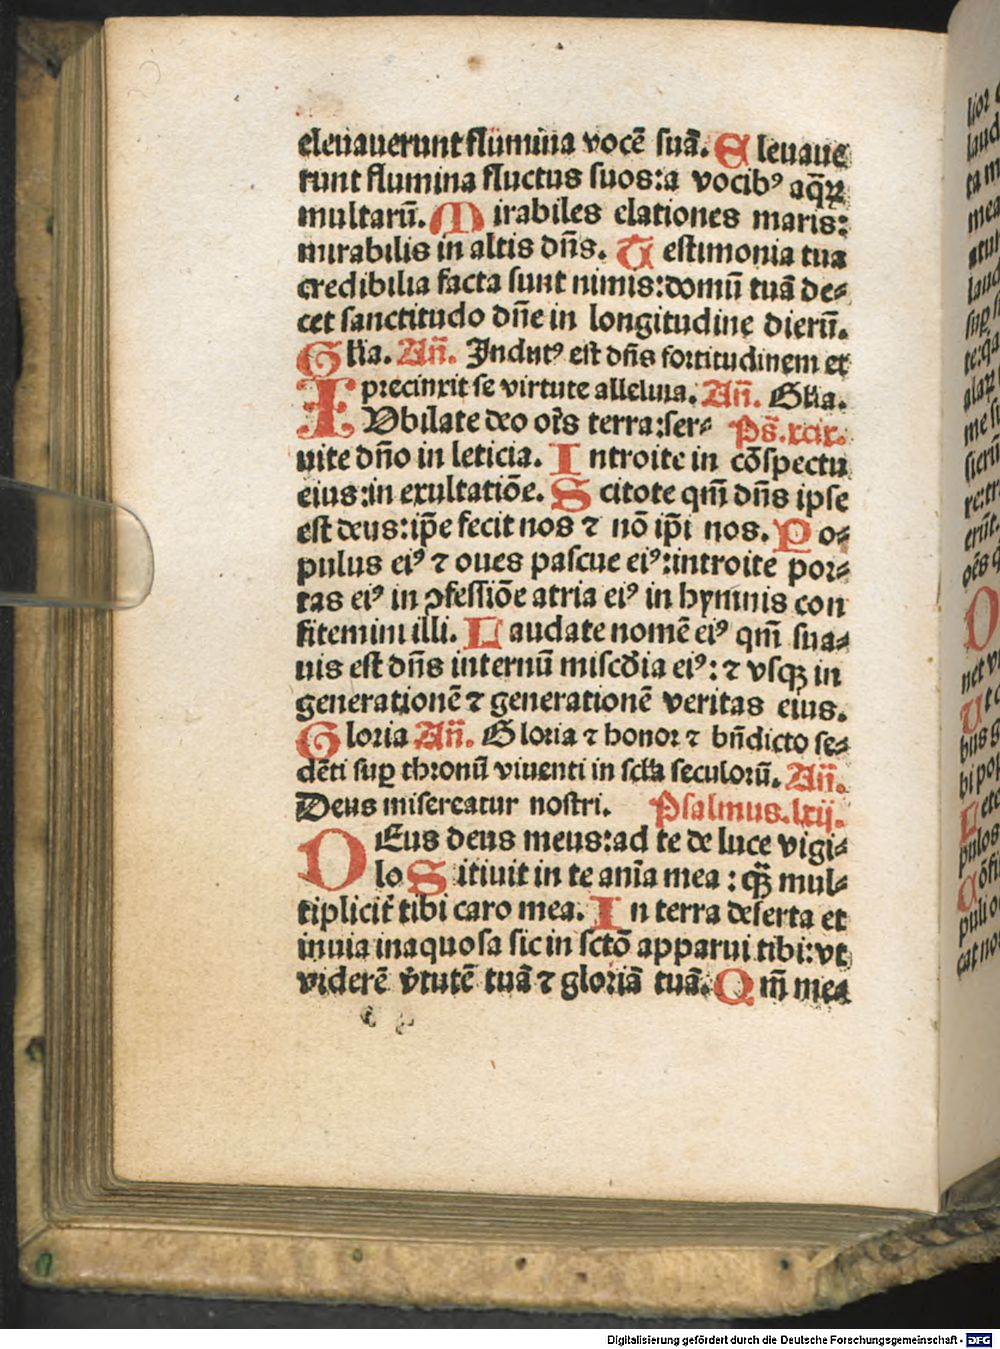 eleuauerunt flumina vocē suā. Eleuaue
runt flumina fluctus suos:a vocibꝰ aq̄ꝝ
multarū. Mirabiles elationes maris:
mirabilis in altis dn̄s. Testimonia tua
credibilia facta sunt nimis:domū tuā de⸗
cet sanctitudo dn̄e in longitudine dierū.
Gl̄ia. An̄. Indutꝰ est dn̄s fortitudinem et
precinxit se virtute alleluia. An̄. Gl̄ia.
IVbilate deo oīs terra:ser⸗ Ps̄.xcix.
uite dn̄o in leticia. Introite in cōspectu
eius:in exultatiōe. Scitote qm̄ dn̄s ipse
est deus:ip̄e fecit nos ⁊ nō ip̄i nos. Po⸗
pulus eiꝰ ⁊ oues pascue eiꝰ:introite por⸗
tas eiꝰ in ꝯfessiōe atria eiꝰ in hymnis con
fitemini illi. Laudate nomē eiꝰ qm̄ sua⸗
uis est dn̄s internū misc̄dia eiꝰ: ⁊ vsqꝫ in
generationē ⁊ generationē veritas eius.
Gloria An̄. Gloria ⁊ honor ⁊ bn̄dicto se⸗
dēti suꝑ thronū viuenti in scl̄a seculorū. An̄.
Deus misereatur nostri. Psalmus.lxij.
DEus deus meus:ad te de luce vigi⸗
lo Sitiuit in te anīa mea : qꝫ̄ mul⸗
tiplicit̄ tibi caro mea. In terra deserta et
inuia inaquosa sic in sctō apparui tibi:vt
viderē v̄tutē tuā ⁊ gloriā tuā. Qm̄ mea
Digitalisierung gefördert durch die Deutsche Forschungsgemeinschaft - DFG